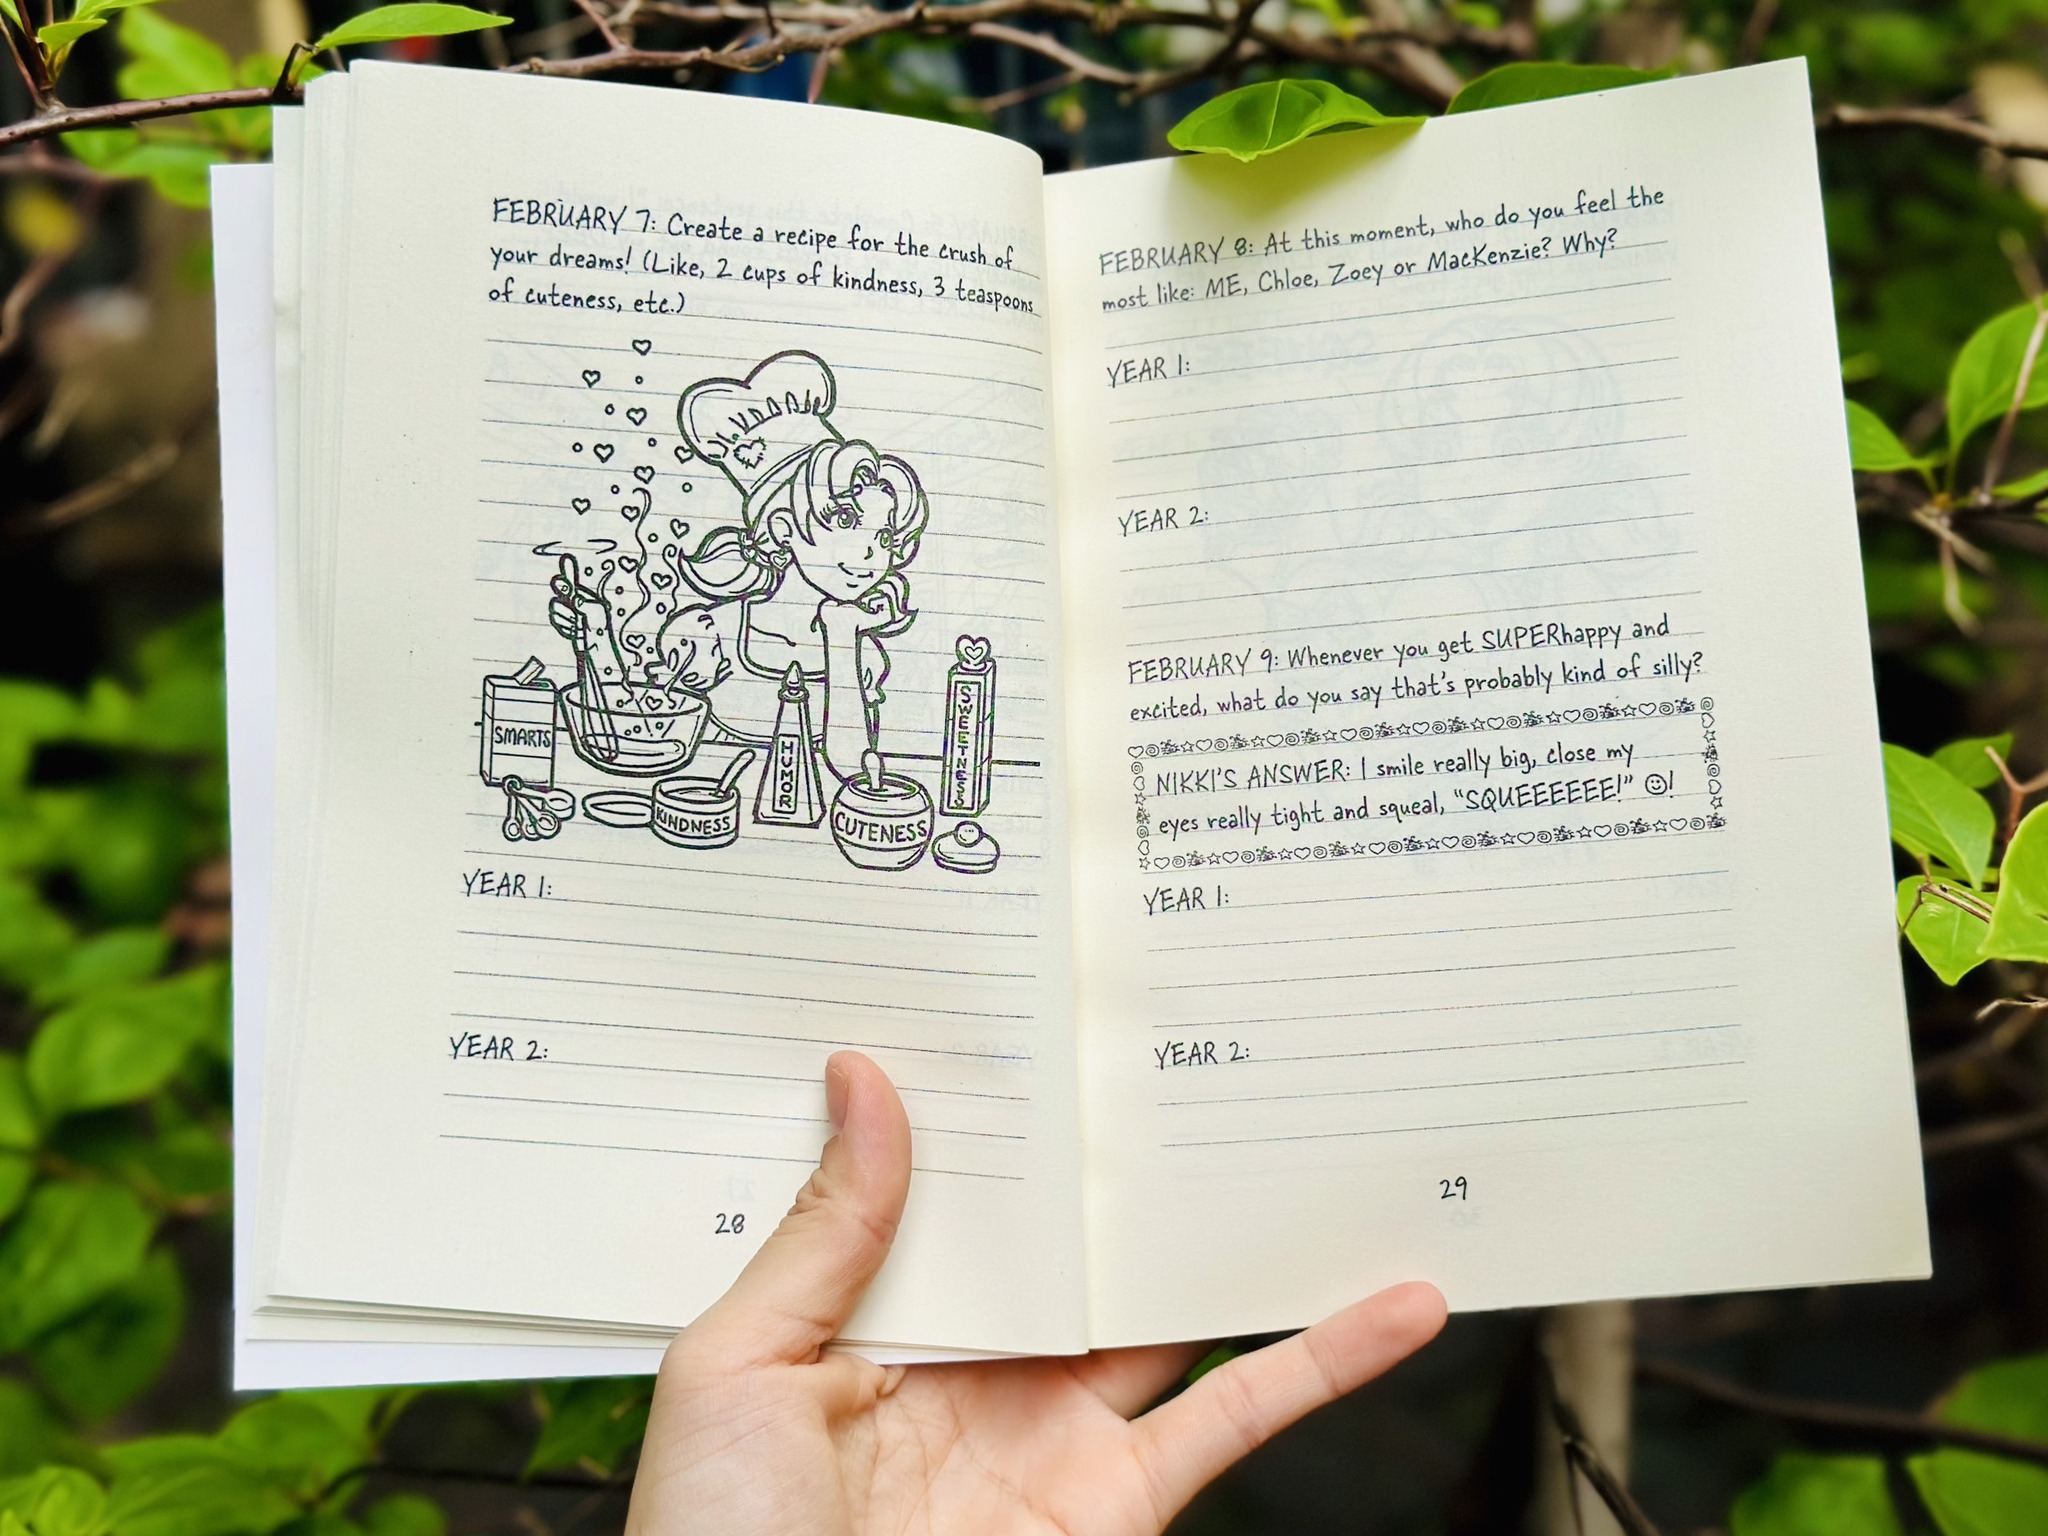 FEBRUARY 7: Create a recipe for the crush of
your dreams! (Like, 2 cups of kindness, 3 teaspoons
of cuteness, etc.)
SMARTS
KINDNESS
HUMOR
CUTENESS
SWEETNESS
YEAR 1:
YEAR 2:
28
FEBRUARY 8: At this moment, who do you feel the
most like: ME, Chloe, Zoey or MacKenzie? Why?
YEAR 1:
YEAR 2:
FEBRUARY 9: Whenever you get SUPERhappy and
excited, what do you say that's probably kind of silly?
NIKKI'S ANSWER: I smile really big, close my
eyes really tight and squeal, "SQUEEEEEE!" ☺!
YEAR 1:
YEAR 2:
29